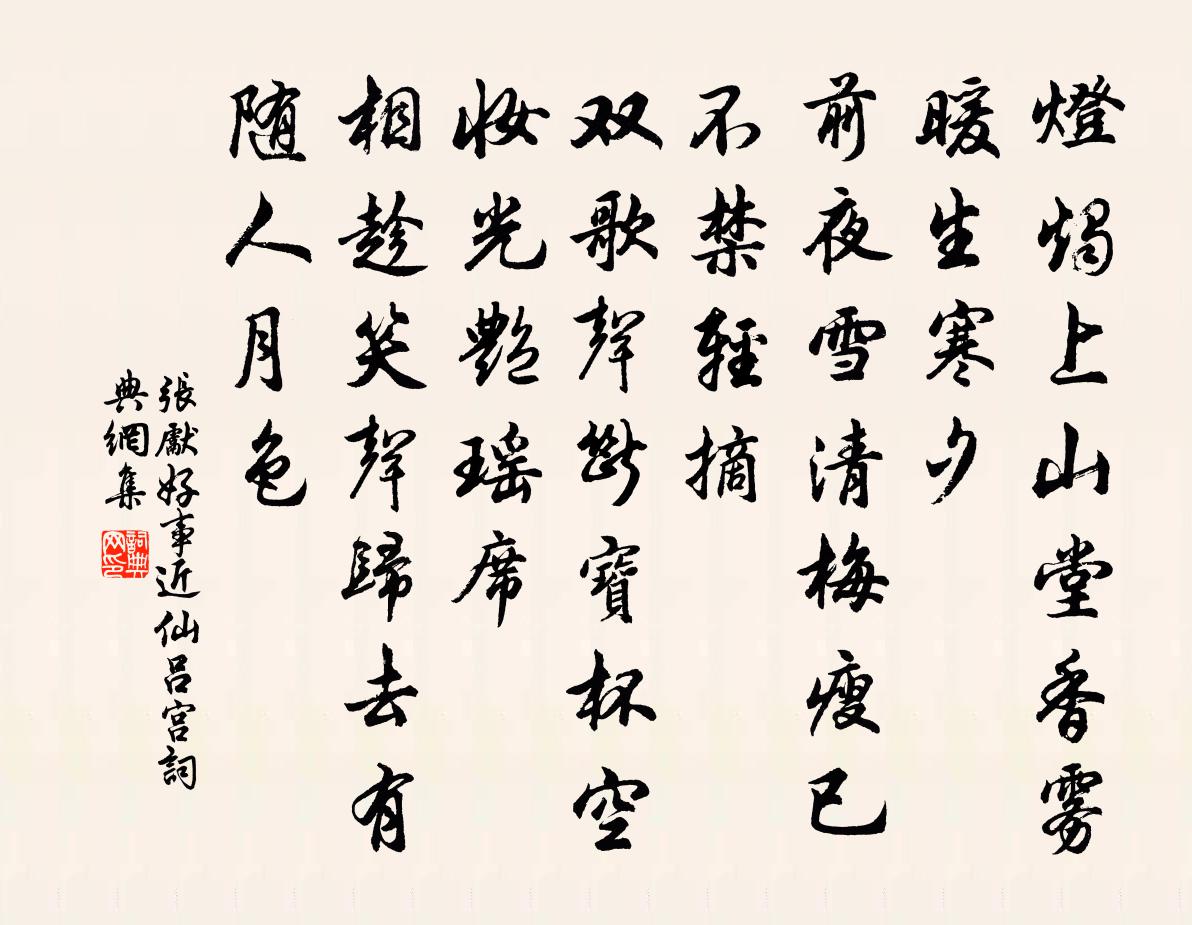 燈燭上山堂香雾
暖生寒夕
前夜雪清梅瘦已
不禁輕摘
双歌聲斷寶杯空
妝光艷瑶席
相趁笑聲歸去有
随人月色
張獻好事近仙吕宫詞
典網集
詞典网印